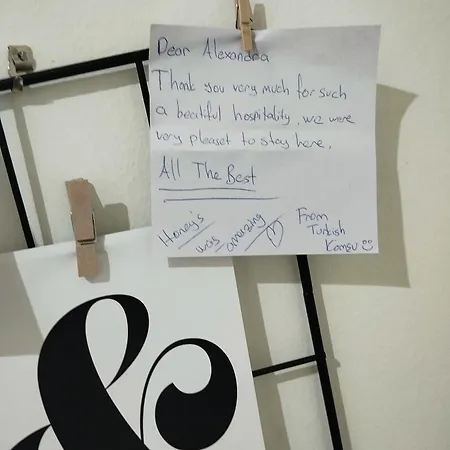 Dear Alexandra
Thank you very much for such
a beatiful hospitality, we were
very pleaset to stay here.
All The Best
Honey's
was amazing
From
Turkish
Komşu
&